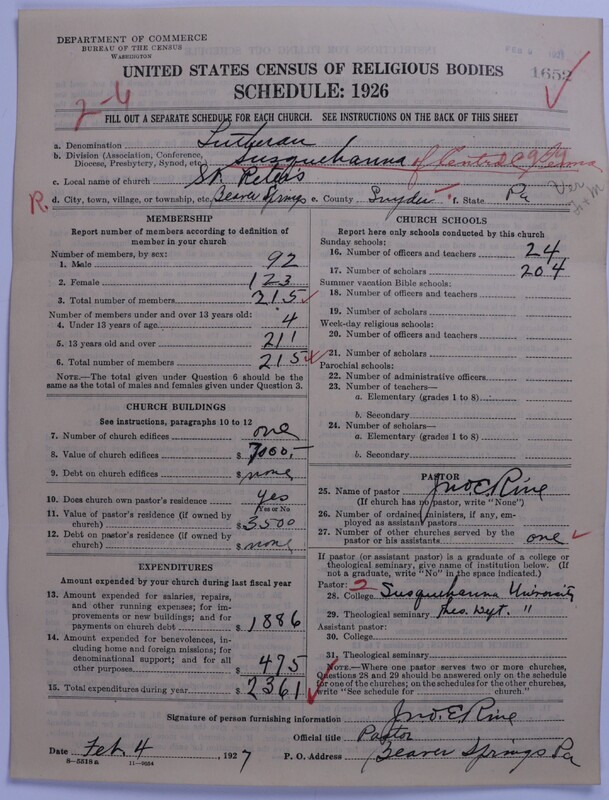 DEPARTMENT OF COMMERCE
BUREAU OF THE CENSUS
WASHINGTON
UNITED STATES CENSUS OF RELIGIOUS BODIES
1652
SCHEDULE: 1926
2-6
FILL OUT A SEPARATE SCHEDULE FOR EACH CHURCH. SEE INSTRUCTIONS ON THE BACK OF THIS SHEET
a. Denomination Lutheran
b. Division (Association, Conference, Diocese, Presbytery, Synod, etc.) Susquehanna of Central Penna
c. Local name of church St. Peters
R. d. City, town, village, or township, etc. Beaver Springs e. County Snyder f. State Pa
MEMBERSHIP
Report number of members according to definition of
member in your church
Number of members, by sex:
1. Male 92
2. Female 123
3. Total number of members 215
Number of members under and over 13 years old:
4. Under 13 years of age 4
5. 13 years old and over 211
6. Total number of members 215
NOTE.—The total given under Question 6 should be
same as the total of males and females given under Question 3.
CHURCH BUILDINGS
See instructions, paragraphs 10 to 12
7. Number of church edifices one
8. Value of church edifices $ 7000.-
9. Debt on church edifices $ none
10. Does church own pastor's residence yes
Yes or No
11. Value of pastor's residence (if owned by
church) $ 3500
12. Debt on pastor's residence (if owned by
church) $ none
EXPENDITURES
Amount expended by your church during last fiscal year
13. Amount expended for salaries, repairs,
and other running expenses; for im-
provements or new buildings; and for
payments on church debt $ 1886
14. Amount expended for benevolences, in-
cluding home and foreign missions; for
denominational support; and for all
other purposes $ 475
15. Total expenditures during year $ 2361
CHURCH SCHOOLS
Report here only schools conducted by this church
Sunday schools:
16. Number of officers and teachers 24
17. Number of scholars 204
Summer vacation Bible schools:
18. Number of officers and teachers
19. Number of scholars
Week-day religious schools:
20. Number of officers and teachers
21. Number of scholars
Parochial schools:
22. Number of administrative officers
23. Number of teachers—
a. Elementary (grades 1 to 8)
b. Secondary
24. Number of scholars—
a. Elementary (grades 1 to 8)
b. Secondary
PASTOR
25. Name of pastor Jno. E. Rine
(If church has no pastor, write "None")
26. Number of ordained ministers, if any, em-
ployed as assistant pastors
27. Number of other churches served by the
pastor or his assistants one
If pastor (or assistant pastor) is a graduate of a college or
theological seminary, give name of institution below. (If
not a graduate, write "No" in the space indicated.)
Pastor: 2
28. College Susquehanna University
29. Theological seminary Theo. Dept. "
Assistant pastor:
30. College
31. Theological seminary
NOTE.—Where one pastor serves two or more churches,
Questions 28 and 29 should be answered only on the schedule
for one of the churches; on the schedules for the other churches,
write "See schedule for church."
Signature of person furnishing information Jno. E. Rine
Official title Pastor
Date Feb. 4, 1927 P. O. Address Beaver Springs Pa
8-5518 a 11-9054